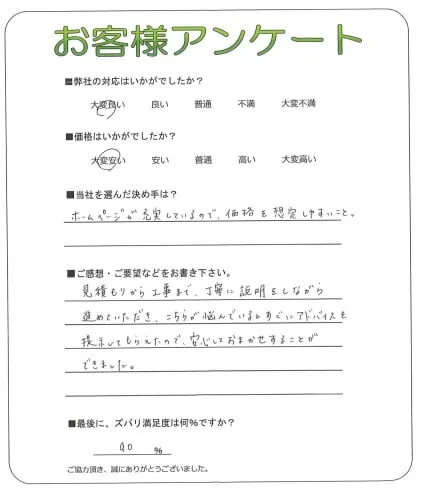 お客様アンケート
■弊社の対応はいかがでしたか？
大変良い 良い 普通 不満 大変不満
■価格はいかがでしたか？
大変安い 安い 普通 高い 大変高い
■当社を選んだ決め手は？
ホームページが充実しているので、価格を想定しやすいこと。
■ご感想・ご要望などをお書き下さい。
見積もりから工事まで、丁寧に説明をしながら
進めていただき、こちらが悩んでいるとすぐにアドバイスを
提示してもらえたので、安心しておまかせすることが
できました。
■最後に、ズバリ満足度は何％ですか？
90 ％
ご協力頂き、誠にありがとうございました。